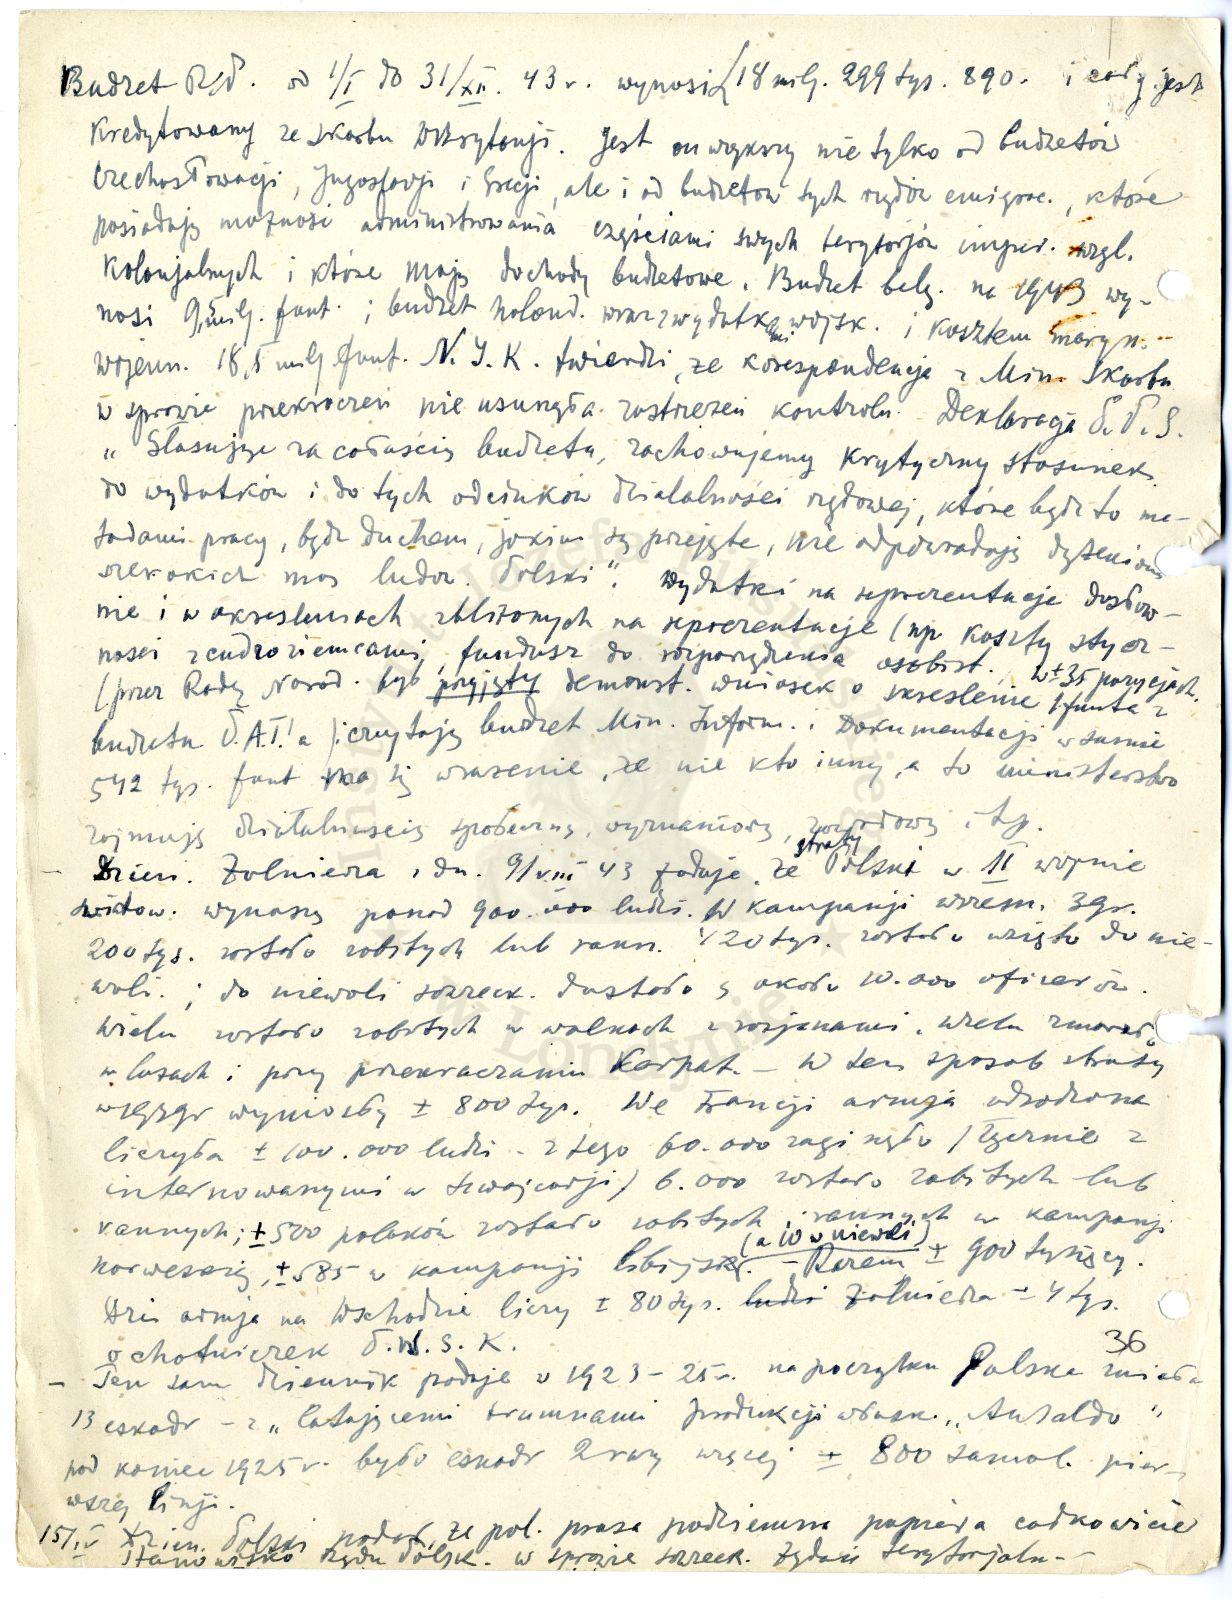 Budżet R.P. od 1/I do 31/XII. 43 r. wynosi £ 18 milj. 299 tys. 890. i cały jest
kredytowany ze skarbu W.Brytanji. Jest on większy nie tylko od budżetów
Czechosłowacji, Jugosławji i Grecji, ale i od budżetów tych rządów emigrac., które
posiadają możność administrowania częściami swych terytorjów imper. wzgl.
kolonjalnych i które mają dochody budżetowe. Budżet belg. na 1943 wy-
nosi 9,5 milj. funt. ; budżet holend. wraz z wydatkami wojsk. i kosztem maryn.
wojenn. 18,5 milj funt. N.I.K. twierdzi, że korespondencja z Min. Skarbu
w sprawie przekroczeń nie usunęła zastrzeżeń kontroli. Deklaracja P.P.S.
"Głosując za całością budżetu, zachowujemy krytyczny stosunek
do wydatków i do tych odcinków działalności rządowej, które bądź to me-
todami pracy, bądź duchem, jakim są przejęte, nie odpowiadają dążeniom
szerokich mas ludow. Polski". Wydatki na reprezentacje dosłow-
nie i w określeniach zbliżonych na reprezentacje (np koszty stycz-
ności z cudzoziemcami, fundusz do rozporządzenia osobist. w ± 35 pozycjach.
(przez Radę Narod. był przyjęty demonst. wniosek o skreślenie 1 funta z
budżetu P.A.T.'a) czytając budżet Min. Inform. i Dokumentacji w sumie
542 tys. funt ma się wrażenie, że nie kto inny, a to ministerstwo
zajmują działalnością społeczną, wyznaniową, i t.p.
— Dzien. Żołnierza z dn. 9/VIII 43 podaje, że straty Polski w II wojnie
światow. wynoszą ponad 900.000 ludzi. W kampanji wrześn. 39 r.
200 tys. zostało zabitych lub rann. 420 tys. zostało wzięto do nie-
woli. ; do niewoli sowieck. dostało się około 10.000 oficerów.
Wielu zostało zabitych w walkach z rosjanami, wielu zmarło
w lasach i przy przekraczaniu Karpat. — W ten sposób straty
w 1939 r wyniosły ± 800 tys. We Francji armja odrodzona
liczyła ± 100.000 ludzi — z tego 60.000 zaginęło (łącznie z
internowanymi w Szwajcarji) 6.000 zostało zabitych lub
rannych; ± 500 polaków zostało zabitych i rannych w kampanji
norweskiej, ± 585 w kampanji libijskiej. (a 10 w niewoli) — Razem ± 900 tysięcy.
Dziś armja na Wschodzie liczy ± 80 tys. ludzi żołnierza — 4 tys.
ochotniczek P.W.S.K.
36
— Ten sam dziennik podaje w 1923 – 25 r. na początku Polska miała
13 eskadr — z "latającemi trumnami produkcji włosk. "Ansaldo"
pod koniec 1925 r. było eskadr 2 razy więcej ± 800 samol. pier-
wszej linji.
15/IV Dzien. Polski podał, że pol. prasa podziemna popiera całkowicie
stanowisko rządu Polsk. w sprawie sowieck. żądań terytorjaln--